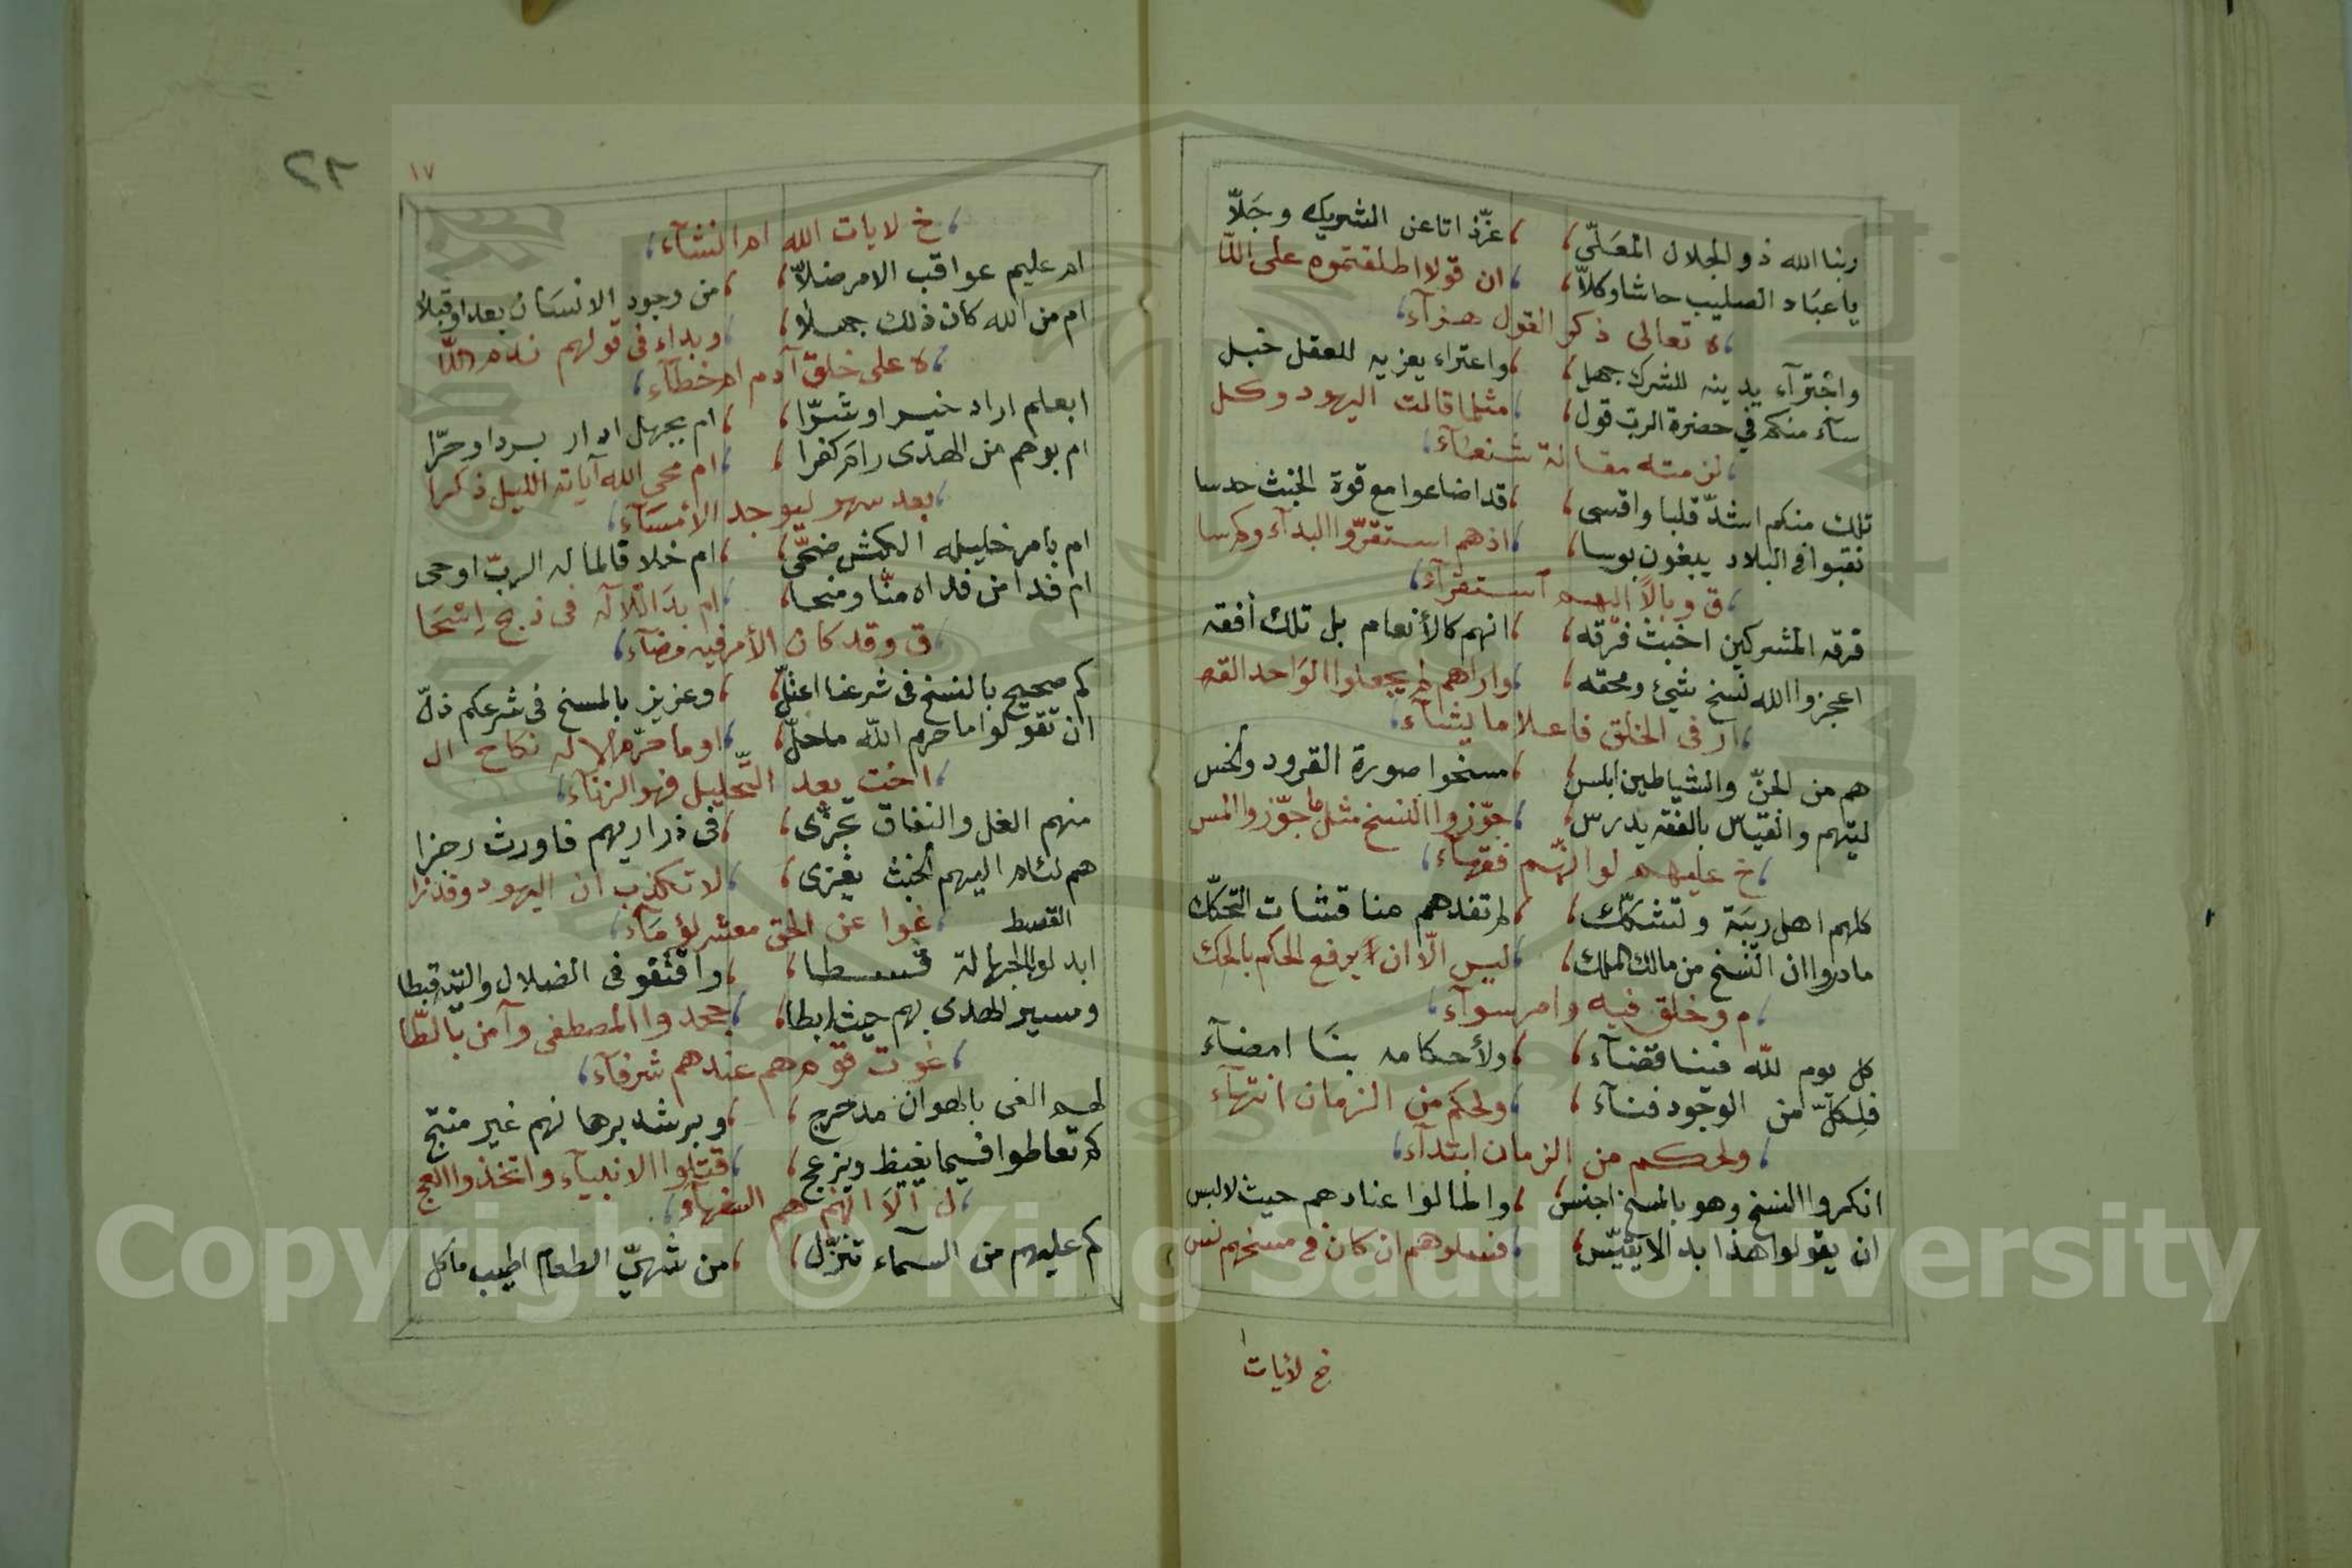 ربنا الله ذو الجلال المعَلّى ، عزّ ذاتا عن الشريك وجَلّا
يا عبَاد الصليب حاشا وكلاّ ، ان قولا اطلقتموه على اللّا
ه تعالى ذكر القول هزآء
واجْتِرآء يدينه للشرك جهل ، واعتراء يعزيه للعقل خبل
سآء منكم في حضرة الربّ قول ، مثلما قالت اليهود وكل
لزمته مقالة شنعآء
تلك منكم اشدّ قلبا واقسى ، قد اضاعوا مع قوة الخبث حدسا
نقبوا في البلاد يبغون بوسا ، اذهم استقرّوا البدآء وكم سا
ق وبالاً اليهم استقرآء
فرقه المشركين اخبث فرّقه ، انهم كالأنعام بل تلك أفقه
اعجزوا الله نسخ شيئ ومحقه ، واراهم لم يجعلوا الوَاحد القه
ار في الخلق فاعلا ما يشآء
هم من الجنّ والشياطين ابلس ، مسخوا صورة القرود واخس
ليتهم والقياس بالفقه يدرس ، جوّزوا النسخ مثل ما جوّزوا المس
خ عليهم لو انّهم فقهآء
كلهم اهل ريبَة وتشكّك ، لم تفدهم مناقشات التحكّك
ما دروا ان النّسخ من مالك الملك ، ليس الّا ان يرفع الحكم بالحك
م وخلق فيه وامر سوآء
كل يوم للّه فينا قضآء ، ولأحكامه بنَا امضآء
فلِكلّ من الوجود فنآء ، ولحكم من الزمان انتهآء
ولحكم من الزمان ابتدآء
انكروا النسخ وهو بالمسخ اجنس ، واطالوا عنادهم حيث لا لبس
ان يقولوا هذا بدا لا يقيّس ، فسلوهم ان كان في مسخهم نس
خ لأيات ا
٢٢
١٧
خ لايات الله ام انشآء
ام عليم عواقب الامر ضلاّ ، من وجود الانسَان بعدا وقبلا
ام من الله كان ذلك جهلا ، وبداء في قولهم ندم اللّا
ه على خلق آدم ام خطآء
ابعلم اراد خيرا وشرّا ، ام بجهل ادار بردا وحرّا
ام بوهم من الهدى رامَ كفرا ، ام محى الله آية الليل ذكرا
بعد سهو ليوجد الأمسَآء
ام بامر خليله الكبش ضحّى ، ام خلا قالما له الربّ اوحى
ام فدا من فداه منّا ومنحا ، ام بدَا للاله في ذبح اسْحَا
ق وقد كان الأمر فيه مضآء
كم صحيح بالنسخ في شرعنا اعتلّ ، وعزيز بالمسخ في شرعكم ذلّ
ان تقولوا ما حرم اللّه ما حلّ ، اوما حرّم الاله نكاح ال
اخت بعد التّحليل فهو الزناء
منهم الغل والنفاق تجزّى ، في ذراريهم فاورث رجزا
هم لئام اليهم الخبث يغزى ، لا تكذب ان اليهود وقد زا
القسط غوا عن الحق معشر لؤمَآء
ابدلوا الجهالة قسطا ، واقتفو في الضلال والتيه قبطا
ومسير الهدى بهم حيث ابطا ، جحدوا المصطفى وآمن بالطّا
غوت قوم هم عندهم شرفآء
لهم الغى بالهوان مدحرج ، وبرشد برهانهم غير منتج
كم تعاطوا فيما يغيظ ويزعج ، قتلوا الانبيآء واتخذوا العج
ل الَا انهم هم السفهآء
كم عليهم من السمآء تنزّل ، من شهيّ الطعام اطيب مأكل
Copyright © King Saud University